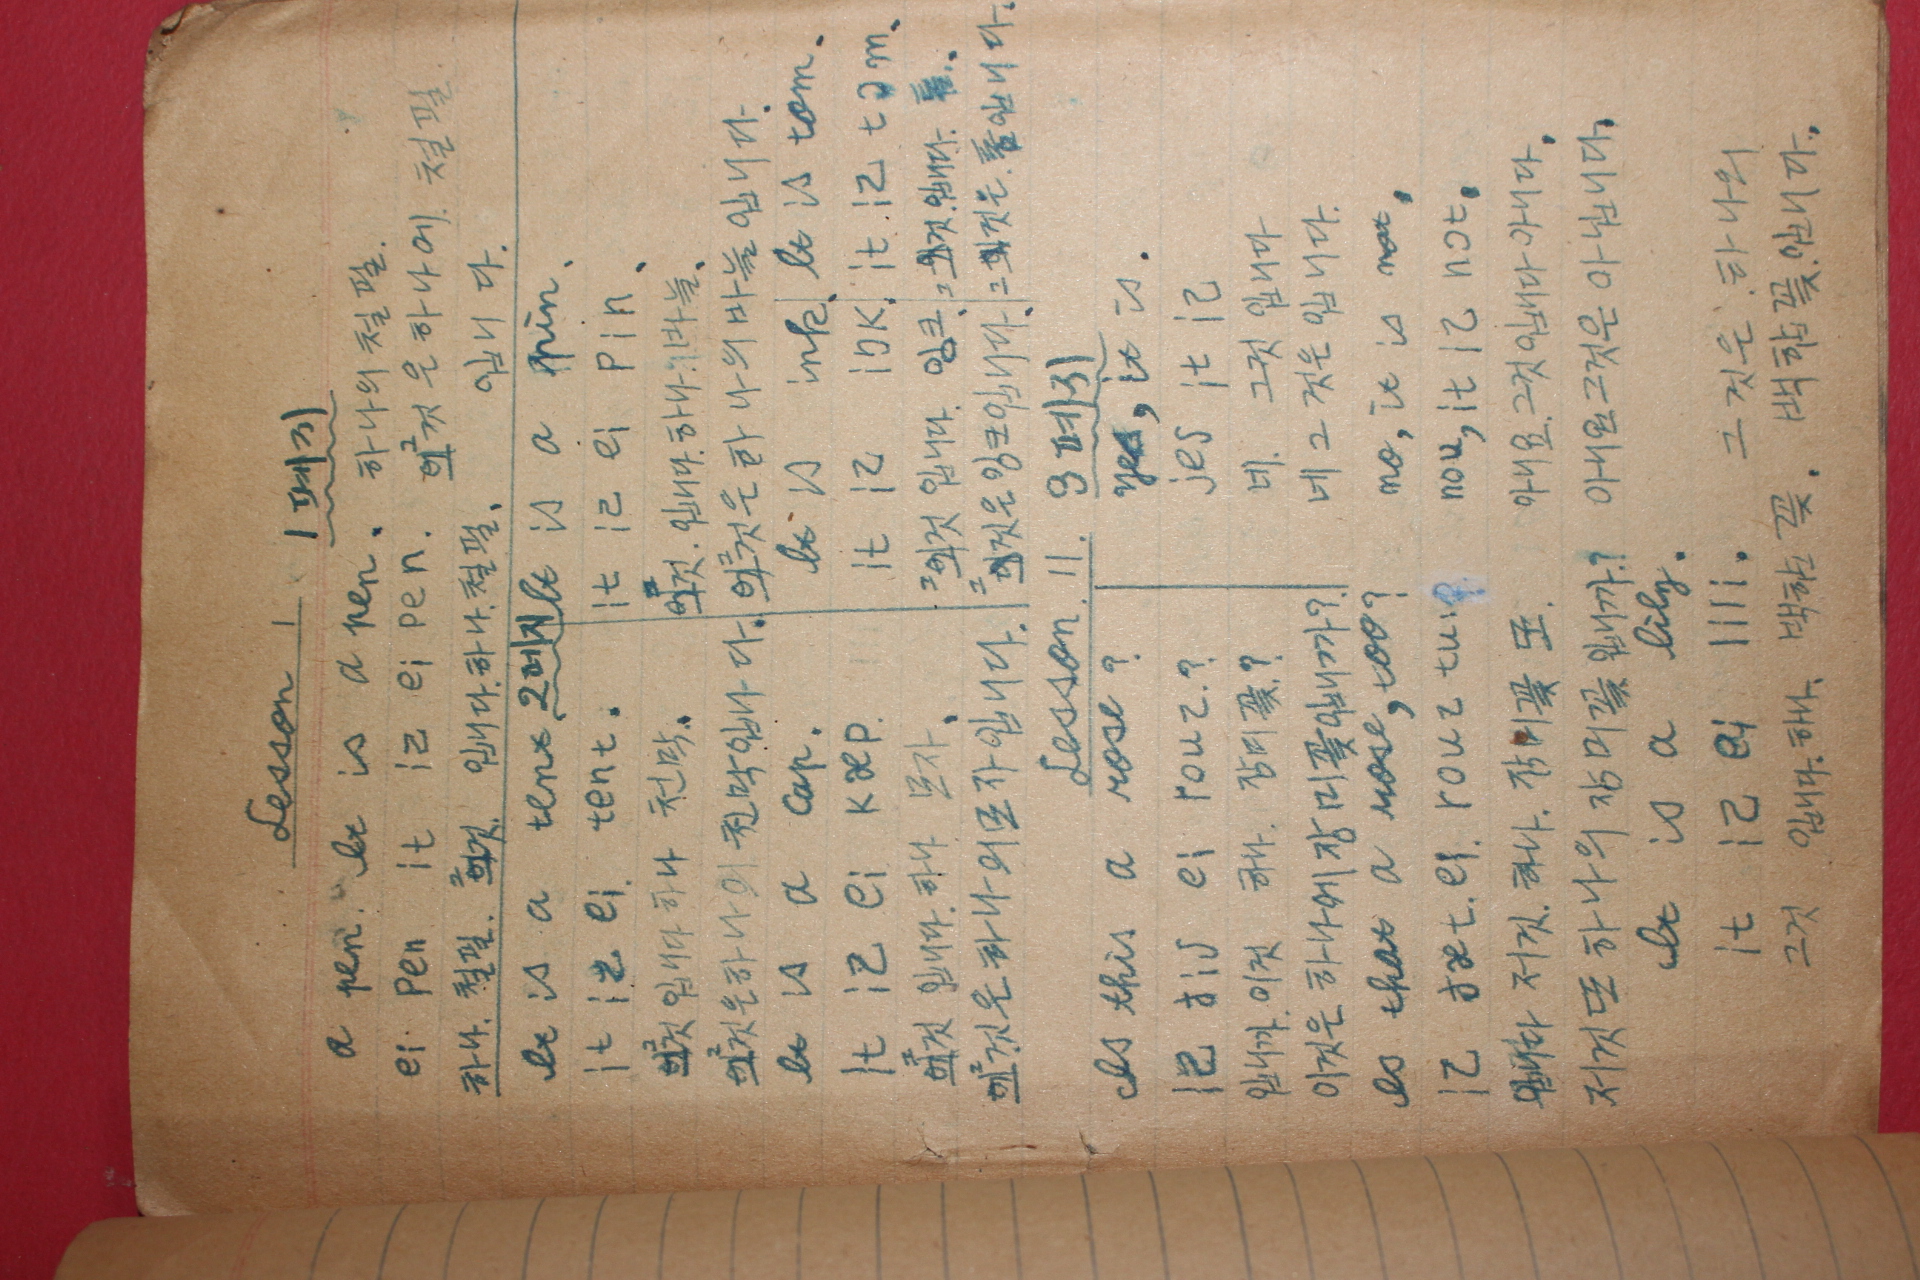 Lesson 1
1 페지
a pen. It is a pen. 하나의 철필.
ei pen it iz ei pen. 그것은 하나에 철필
하나. 철필. 그것. 입니다. 하나. 철필. 입니다.
It is a tent. 2페지 It is a pin.
it iz ei tent. it iz ei pin.
그것 입니다 하나 천막. 그것. 입니다. 하나. 바늘.
그것은 하나의 천막입니다. 그것은 하나의 바늘 입니다.
It is a cap. It is ink. It is tom.
it iz ei kæp. it iz iŋk. it iz tɔm.
그것 입니다. 하나 모자. 그것 입니다. 잉크. 그것. 입니다. 톰.
그것은 하나의 모자 입니다. 그것은 잉크입니다. 그것은. 톰입니다.
Lesson. II. 3 페지
Is this a rose? yes, it is.
iz ðis ei rouz.? jes it iz
입니까. 이것 하나. 장미꽃? 네. 그것 입니다
이것은 하나에 장미꽃입니까? 네 그것은 입니다.
Is that a rose, too? no, it is not.
iz ðæt. ei. rouz tu:? nou, it iz not.
저것. 하나. 장미꽃 또. 아니요. 그것 입니다 아니다.
저것 또 하나의 장미꽃 입니까? 아니요 그것은 아닙니다.
It is a lily.
it iz ei lili.
그것 입니다. 하나. 백합 꽃. 그것은 하나의 백합꽃입니다.